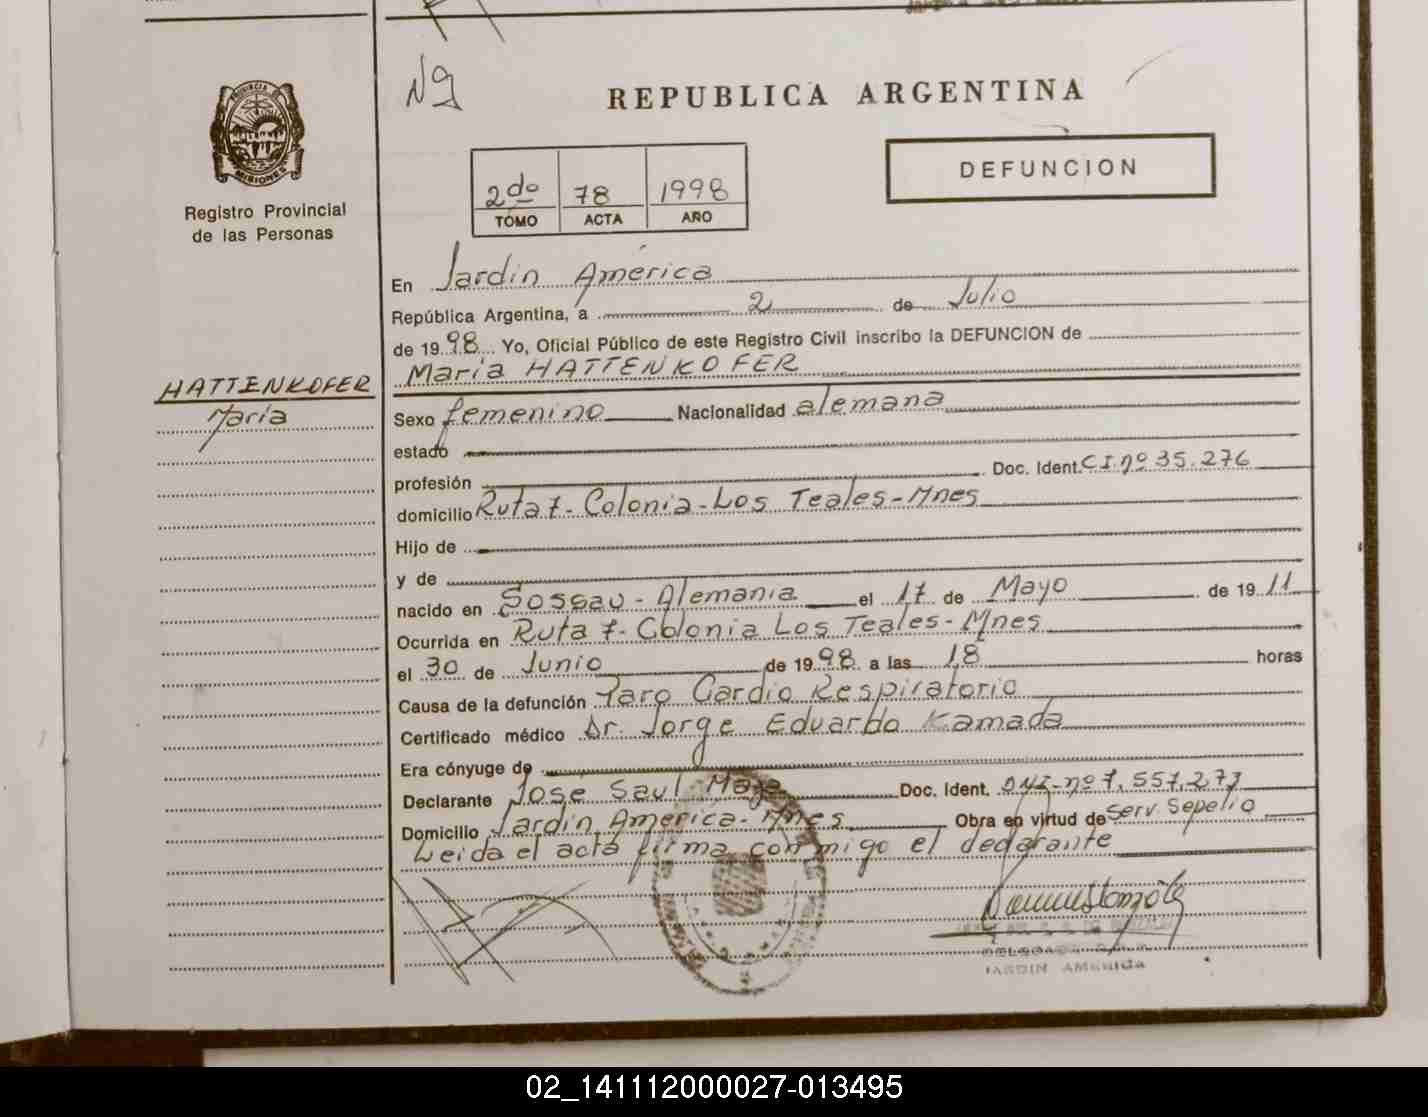 PROVINCIA DE
MISIONES
Registro Provincial
de las Personas
HATTENKOFER
María
Nº
REPUBLICA ARGENTINA
2do 78 1998
TOMO ACTA AÑO
DEFUNCION
En Jardín América
República Argentina, a 2 de Julio
de 1998 Yo, Oficial Público de este Registro Civil inscribo la DEFUNCION de
María HATTENKOFER
Sexo femenino Nacionalidad alemana
estado
profesión Doc. Ident. C.I. nº 35.276
domicilio Ruta 7- Colonia-Los Teales-Mnes
Hijo de
y de
nacido en Sossau - Alemania el 17 de Mayo de 1911
Ocurrida en Ruta 7- Colonia Los Teales-Mnes
el 30 de Junio de 1998 a las 18 horas
Causa de la defunción Paro Cardio Respiratorio
Certificado médico Dr. Jorge Eduardo Kamada
Era cónyuge de
Declarante José Saul Doc. Ident. DNI-nº 7.557.273
Domicilio Jardín América-Mnes Obra en virtud de Serv. Sepelio
Leida el acta firma conmigo el declarante
JARDIN AMERICA
02_141112000027-013495